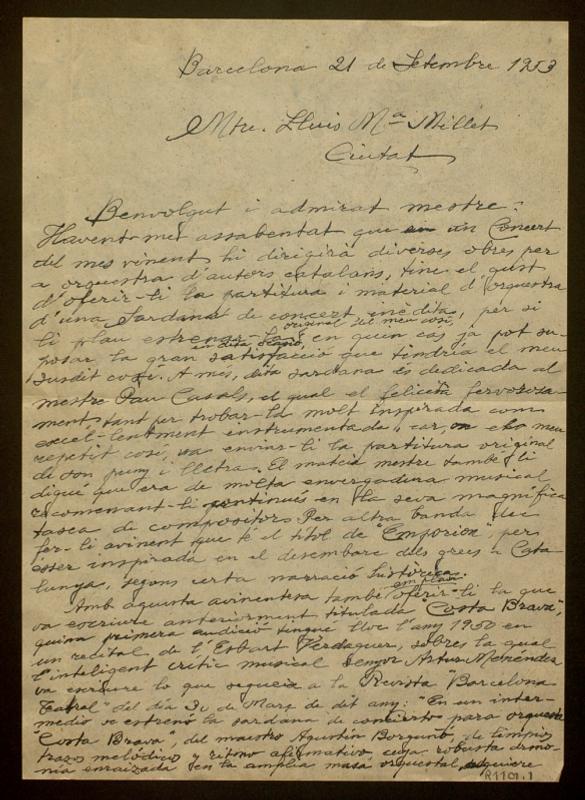 Barcelona 21 de Setembre 1953
Mtre. Lluis Mª Millet
Ciutat
Benvolgut i admirat mestre:
Havent-me assabentat que en un Concert
del mes vinent hi dirigirà diverses obres per
a orquestra d'autors catalans, tinc el gust
d'oferir-li la partitura i material d'orquestra
d'una Sardana de concert inèdita, per si
original del meu cosí,
li plau estrenar-la en dita sessió, en quin cas ja pot su-
posar la gran satisfacció que tindría el meu
susdit cosí. A més, dita sardana és dedicada al
mestre Pau Casals, el qual el felicità fervorosa-
ment, tant per trobar-la molt inspirada com
excel·lentment instrumentada, car, el meu
repetit cosí, va enviar-li la partitura original
de son puny i lletra. El mateix mestre també li
digué que era de molta envergadura musical
recomenant-li continués en la seva magnífica
tasca de compositor. Per altra banda dec
fer-li avinent que té el títol de "Emporion", per
ésser inspirada en el desembarc dels grecs a Cata-
lunya, segons certa narració històrica.
em plau
Amb aquesta avinentesa també oferir-li la que
va escriure anteriorment titulada "Costa Brava",
quina primera audició tingué lloc l'any 1950 en
un recital de l'Esbart Verdaguer, sobre la qual
l'inteligent crític musical Senyor Artur Menéndez
va escriure lo que segueix a la Revista "Barcelona
Teatral" del día 30 de Març de dit any: "En un inter-
medio se estrenó la sardana de concierto para orquesta
"Costa Brava", del maestro Agustín Borgunó, de limpios
trazos melódicos y ritmo afirmativo cuya robusta armo-
nía enraizada en la amplia masa orquestal, adquiere
R1101.1